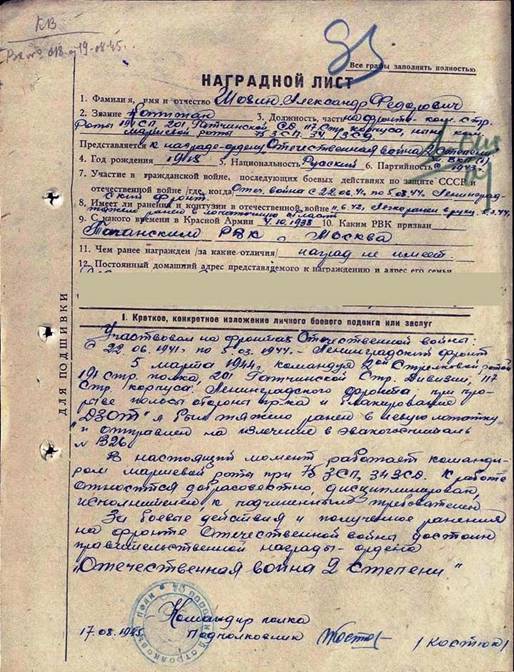 КВ
Вх № 618 от 19-08.45.
Все графы заполнять полностью
НАГРАДНОЙ ЛИСТ
1. Фамилия, имя и отчество Шовин Александр Федорович
2. Звание Капитан 3. Должность, часть на фронте-ком. стр.
роты 191 СП, 201 Гатчинской СД, 117 Стр корпуса, ныне ком.
маршевой роты 75 ЗСП. 34 ЗСД.
Представляется к награде-ордену Отечественная война 2 степени
4. Год рождения 1918 5. Национальность Русский 6. Партийность ВКП(б)
7. Участие в гражданской войне, последующих боевых действиях по защите СССР и
отечественной войне /где, когда Отеч. война с 22.06.41 по 5.03.44. Ленинград-
ский фронт
8. Имеет ли ранения и контузии в отечественной войне
тяжело ранен в лопаточную область
9. С какого времени в Красной Армии 10. Каким РВК призван
РВК г Москва
11. Чем ранее награжден /за какие отличия наград не имеет.
12. Постоянный домашний адрес представляемого к награждению и адрес его семьи
ДЛЯ ПОДШИВКИ
I. Краткое, конкретное изложение личного боевого подвига или заслуг
Участвовал на фронтах Отечественной война:
с 22.06.1941г по 5.03.1944г.- Ленинградский фронт
5 марта 1944г, командуя 2ой Стрелковой ротой
191 стр. полка, 201 Гатчинской Стр. Дивизии, 117
Стр корпуса, Ленинградского фронта при про-
рыве полосы обороны врага и блакировании
"ДЗОТ"а был тяжело ранен в левую лопатку
и отправлен на излечение в эвакогоспиталь
N 1326.
В настоящий момент работает команди-
ром маршевой роты при 75 ЗСП, 34 ЗСД. К работе
относится добросовестно, дисциплинирован,
исполнителен, к подчиненным требователен.
За боевые действия и полученное ранения
на фронте Отечественной войны достоин
правительственной награды-ордена
"Отечественная война 2 степени"
Командир полка
17.08.1945 Подполковник /Костюк/